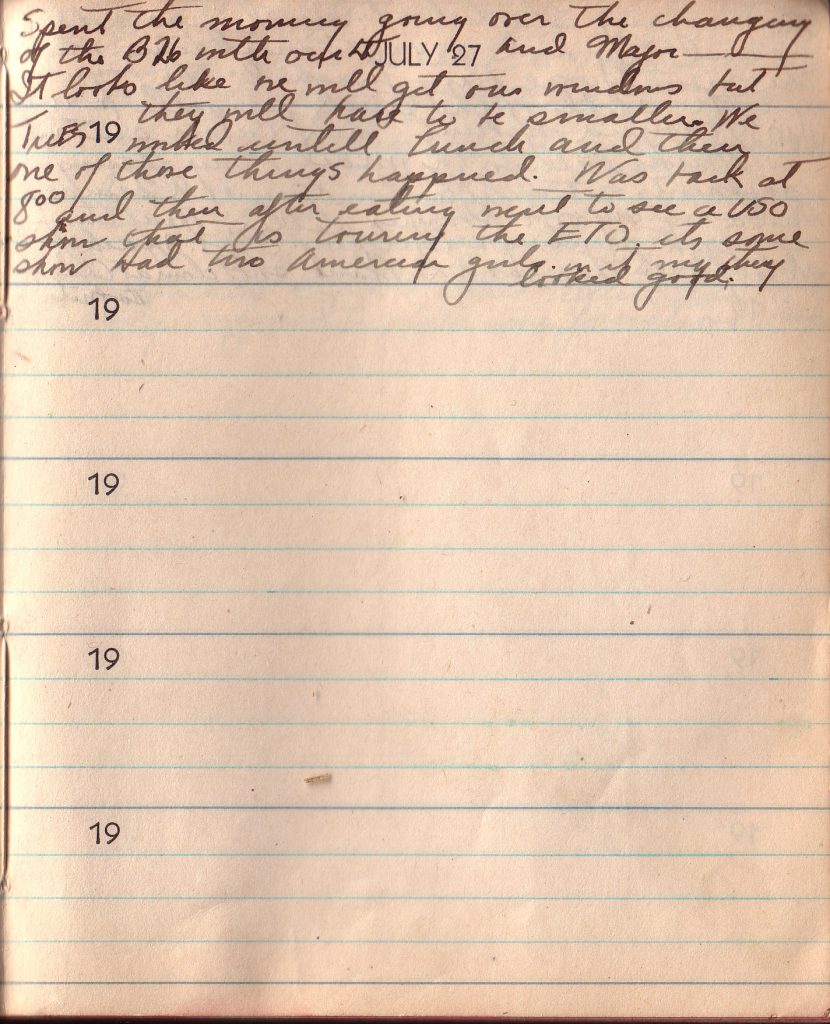 Spent the morning going over the changing
of the B26 with our JULY 27 and Major
It looks like we will get our windows but
they will have to be smaller. We
Tues 19 worked untill lunch and then
one of those things happned. Was back at
8⁰⁰ and then after eating went to see a USO
show that is touring the ETO. its some
show had two American girls in it my they
looked good.
19
19
19
19